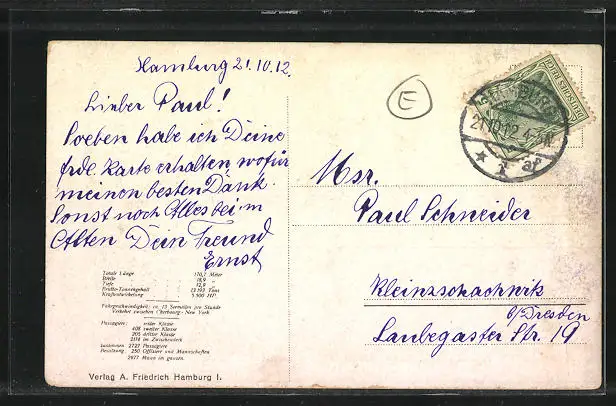 Hamburg 21.10.12.
Lieber Paul!
Soeben habe ich Deine
frdl. Karte erhalten wofür
meinen besten Dank.
Sonst noch Alles beim
Alten Dein Freund
Ernst
Totale Länge 170,7 Meter
Breite 18,9 "
Tiefe 12,9 "
Brutto-Tonnengehalt 13 193 Tons
Kraftentwickelung 5 500 HP.
Fahrgeschwindigkeit: ca. 13 Seemeilen pro Stunde
Verkehrt zwischen Cherbourg - New York
Passagiere: erster Klasse
408 zweiter Klasse
205 dritter Klasse
2114 im Zwischendeck
zusammen 2727 Passagiere
Besatzung 250 Offiziere und Mannschaften
2977 Mann im ganzen.
Verlag A. Friedrich Hamburg I.
E
DEUTSCHES REICH
HAMBURG
21.10.12. 4-5 N.
* 1 *
Msr.
Paul Schneider
Kleinzschachwik
b/Dresten
Laubegaster Str. 19